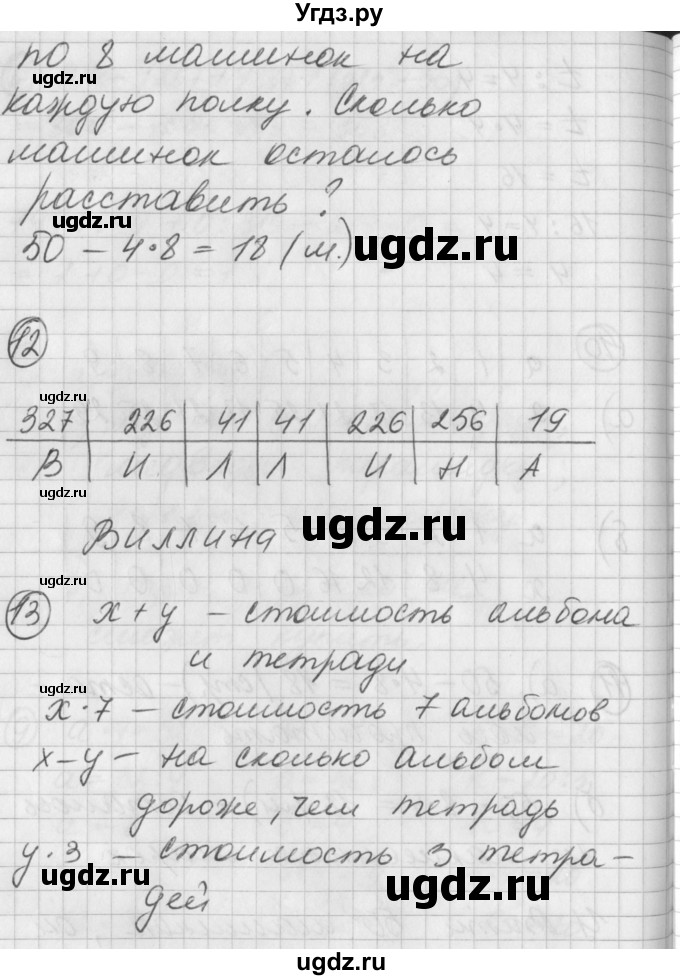 Угдз.ру
по 8 машинок на
каждую полку. Сколько
машинок осталось
расставить?
50 – 4·8 = 18 (м.)
12
327 | 226 | 41 | 41 | 226 | 256 | 19
В | И | Л | Л | И | Н | А
Виллина
13 x + y – стоимость альбома
и тетради
x·7 – стоимость 7 альбомов
x – y – на сколько альбом
дороже, чем тетрадь
y·3 – стоимость 3 тетра-
дей
ugdz.ru
ugdz.ru
ugdz.ru
ugdz.ru
ugdz.ru
ugdz.ru
ugdz.ru
ugdz.ru
ugdz.ru
ugdz.ru